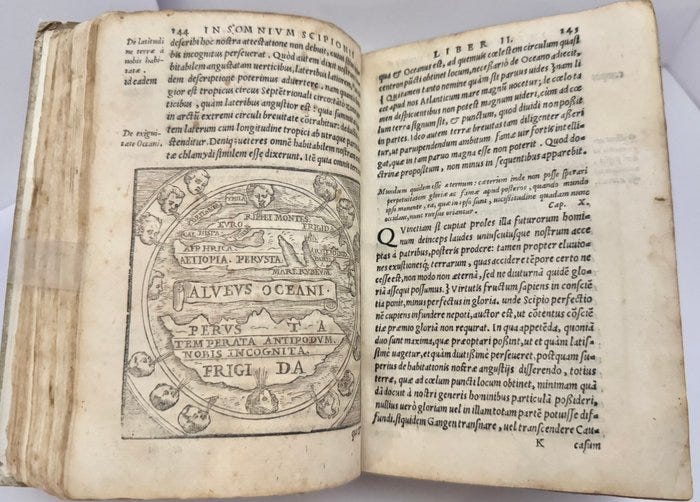 144 IN SOMNIUM SCIPIONIS
De latitudi
ne terræ à
nobis habi-
tatæ.
id eadem
De exigui-
tate Oceani.
describi hoc nostra attestatione non debuit, cuius
bis incognitus perseuerat. Quod autem dixit nostram
bitabilem angustatam uerticibus, lateribus latiorem,
dem descriptione poterimus aduertere. nam quanto
gior est tropicus circus Septētrionali circo, tanto
ticibus, quàm lateribus angustior est: quia summitas
in arctū extremi circuli breuitate cōtrahitur: deductio
tem laterum cum longitudine tropici ab utraque parte
stenditur. Deniq; ueteres omnē habitabilem nostram
tæ chlamydi similem esse dixerunt. Itē quia omnis
THILE
EVRO
RIPHEI MONTES.
FRIGIDA
ITAL HISPA
APHRICA
AETIOPIA. PERVSTA.
MARE RVBRVM
ALVEVS OCEANI.
PERVS TA
TEMPERATA ANTIPODVM
NOBIS INCOGNITA.
FRIGI DA
LIBER II. 145
qua & Oceanus est, ad quemuis cœlestem circulum quasi
centron puncti obtinet locum, necessariò de Oceano adiecit,
Qui tamen tanto nomine quàm sit paruus uides. nam li-
cet apud nos Atlanticum mare magnū uocetur, de cœlo ta-
men despicientibus non potest magnum uideri, cùm ad cœ-
lum terra signum sit, & punctum, quod diuidi non possit
in partes. Ideo autem terræ breuitas tam diligenter asseri
tur, ut parupendendum ambitum famæ uir fortis intelli-
gat, quæ in tam paruo magna esse non poterit. Quod do-
ctrinæ propositum, non minus in sequentibus apparebit.
Mundum quidem esse æternum: cæterum inde non posse sperari
perpetuitatem gloriæ ac famæ apud posteros, quando mundo
ipso manente, ea, quæ in ipso sunt, uicissitudine quadam nunc
occidant, nunc rursus oriantur. Cap. X.
QVinetiam si cupiat proles illa futurorum homi-
num deinceps laudes uniuscuiusque nostrum accep
tas à patribus, posteris prodere: tamen propter eluuio-
nes exustionesq́; terrarum, quas accidere tēpore certo ne
cesse est, non modo non æternā, sed ne diuturnā quidē glo-
riā assequi possumus. Virtutis fructum sapiens in consciē
tia ponit, minus perfectus in gloria. unde Scipio perfectio
nē cupiens infundere nepoti, auctor est, ut cōtentus cōsciē
tiæ præmio gloriā non requirat. In qua appetēda, quoniā
duo sunt maxima, quæ præoptari possint, ut et quàm latis-
simè uagetur, et quàm diutissimè perseueret, postquam su-
perius de habitationis nostræ angustijs disserendo, totius
terræ, quæ ad cœlum puncti locum obtinet, minimam quā
dā docuit à nostri generis hominibus particulā possideri,
nullius uerò gloriam uel in illam totam partē potuisse dif-
fundi, siquidem Gangen transnare, uel transcendere Cau-
K casum